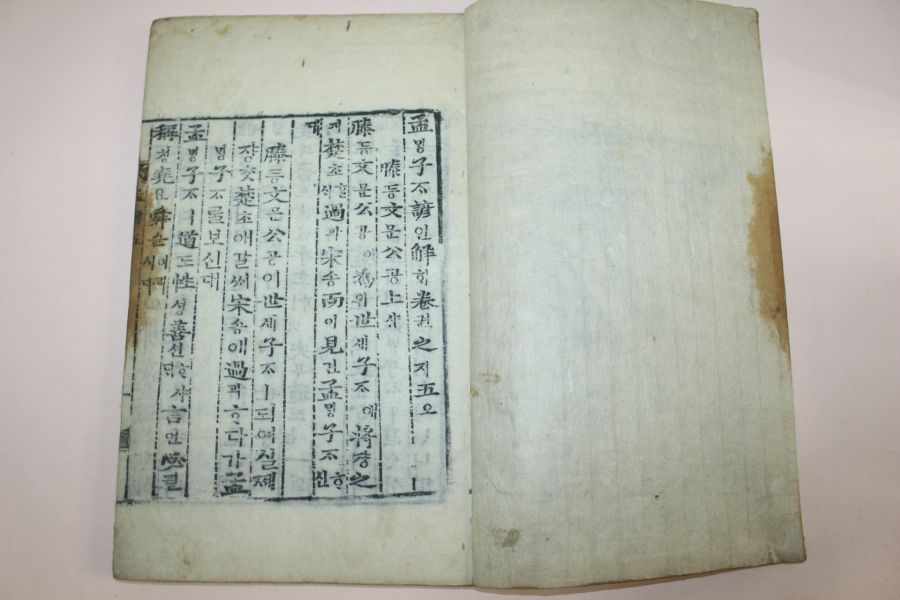 孟ᄆᆡᆼ子ᄌᆞ諺언解ᄒᆡ卷권之지五오
滕등文문公공上샹
滕등文문公공이爲위世셰子ᄌᆞ애將쟝之지
楚초ᄒᆞᆯᄉᆡ過과宋송而이見견孟ᄆᆡᆼ子ᄌᆞᄒᆞ신
대
滕등文문公공이世셰子ᄌᆞㅣ되여실제
쟝ᄎᆞᆺ楚초애갈ᄉᆡ宋송애過과ᄒᆞ다가孟
ᄆᆡᆼ子ᄌᆞᄅᆞᆯ보신대
孟ᄆᆡᆼ子ᄌᆞㅣ道도性셩善션ᄒᆞ샤ᄃᆡ言언必필
稱칭堯요舜슌이러시다